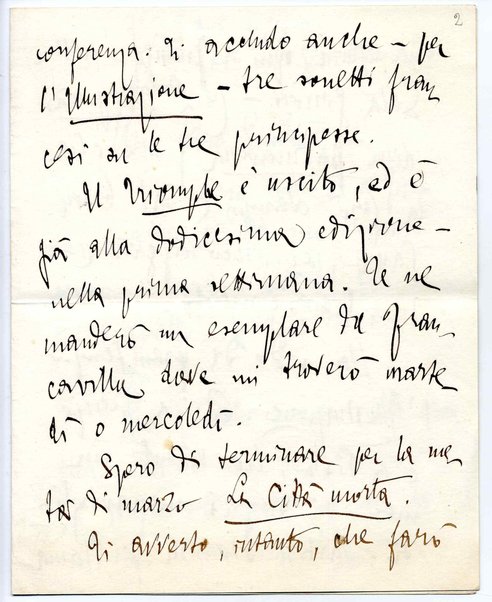 2
conferenza. Ti accludo anche – per
l'Illustrazione – tre sonetti fran
cesi su le tre principesse.
Il Triomphe è uscito, ed è
già alla dodicesima edizione –
nella prima settimana. Te ne
manderò un esemplare da Fran-
cavilla dove mi troverò marte
dì o mercoledì.
Spero di terminare per la me
tà di marzo La Città morta.
Ti avverto, intanto, che farò